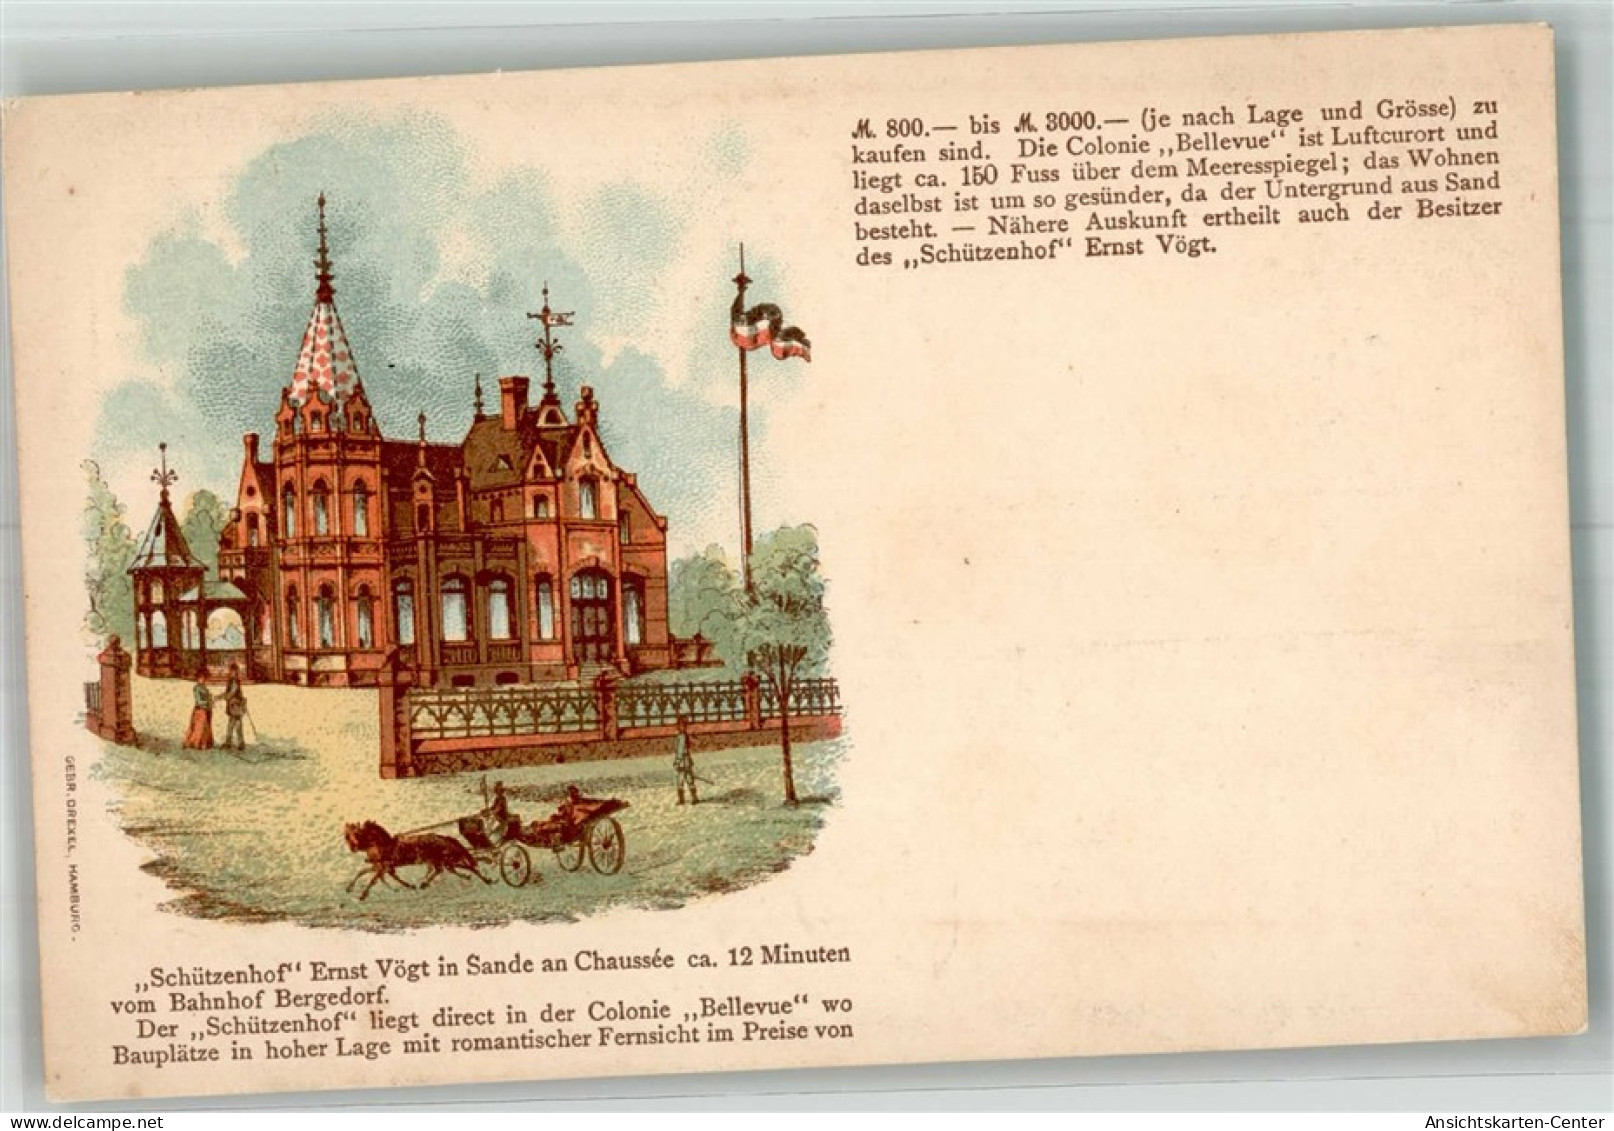 „Schützenhof“ Ernst Vögt in Sande an Chaussée ca. 12 Minuten
vom Bahnhof Bergedorf.
Der „Schützenhof“ liegt direct in der Colonie „Bellevue“ wo
Bauplätze in hoher Lage mit romantischer Fernsicht im Preise von
M. 800.— bis M. 3000.— (je nach Lage und Grösse) zu
kaufen sind. Die Colonie „Bellevue“ ist Luftcurort und
liegt ca. 150 Fuss über dem Meeresspiegel; das Wohnen
daselbst ist um so gesünder, da der Untergrund aus Sand
besteht. — Nähere Auskunft ertheilt auch der Besitzer
des „Schützenhof“ Ernst Vögt.
GEBR. DREXEL, HAMBURG.
delcampe.net
the_muc
Ansichtskarten-Center